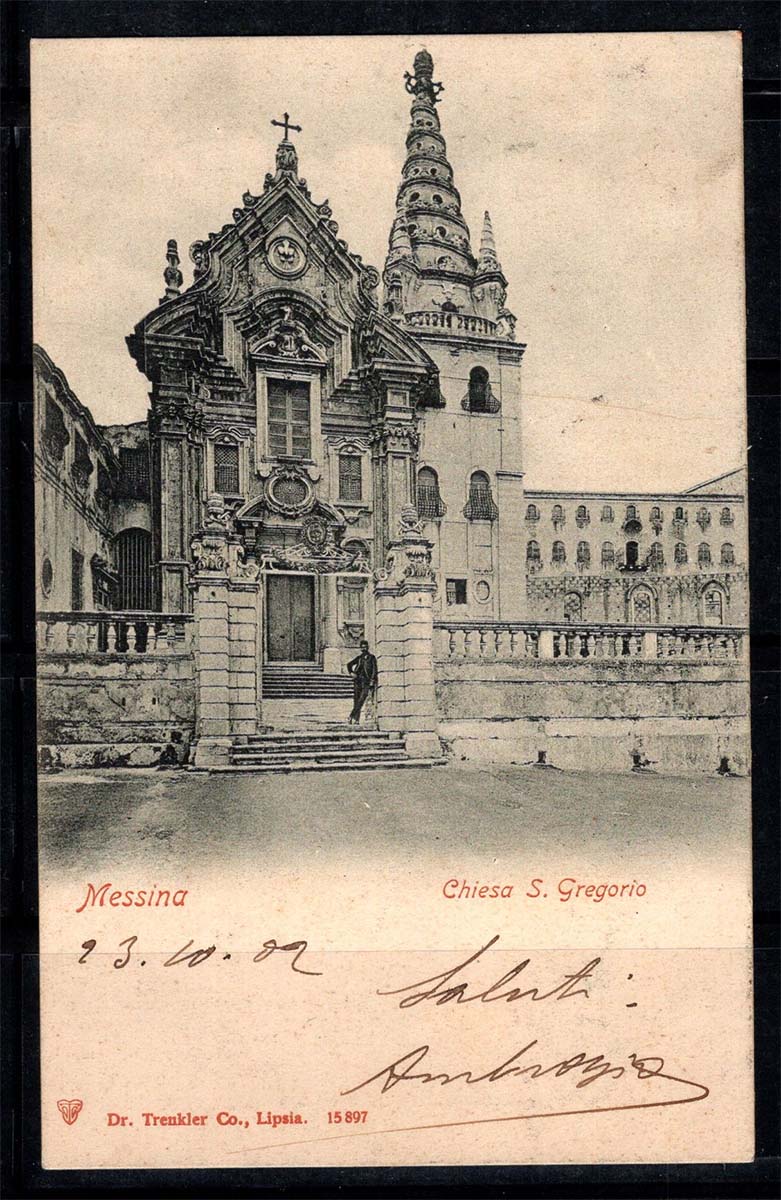 Messina
Chiesa S. Gregorio
23. 10. 02
Saluti
Ambrogio
Dr. Trenkler Co., Lipsia. 15897